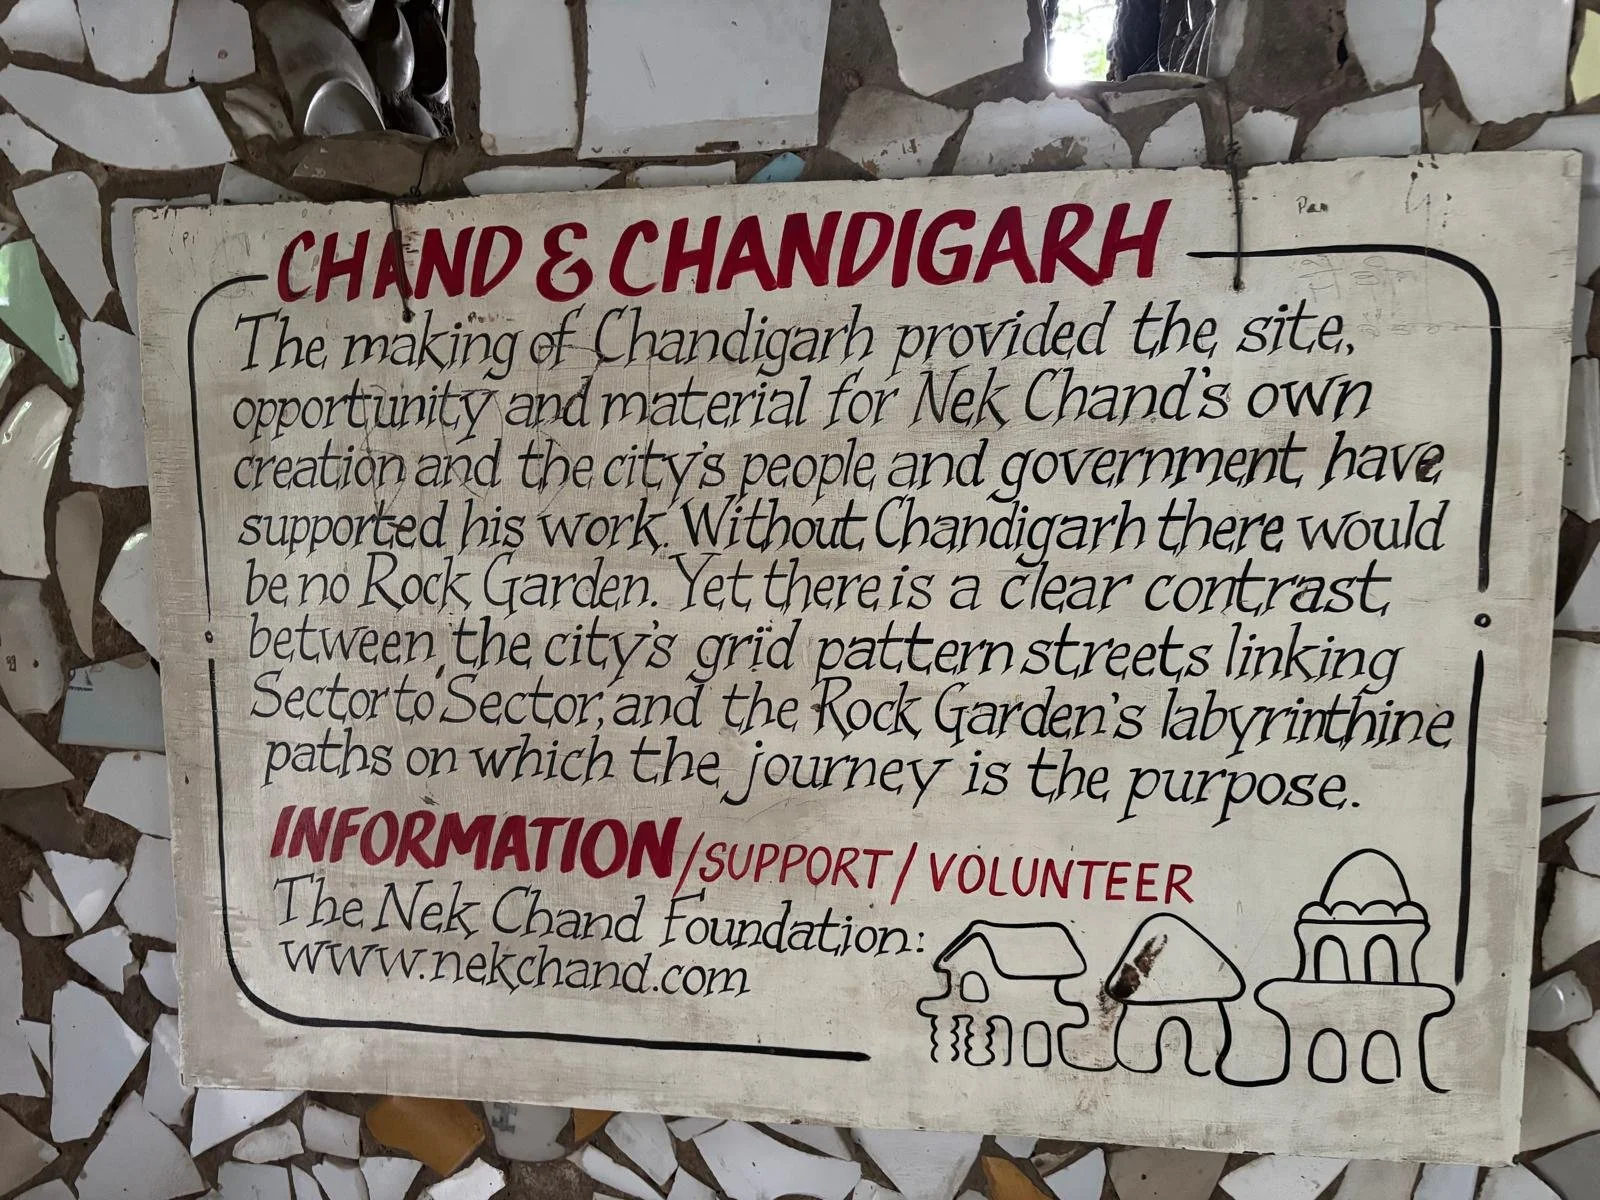 CHAND & CHANDIGARH
The making of Chandigarh provided the site,
opportunity and material for Nek Chand's own
creation and the city's people and government have
supported his work. Without Chandigarh there would
be no Rock Garden. Yet there is a clear contrast
between the city's grid pattern streets linking
'Sector to Sector,' and the Rock Garden's labyrinthine
paths on which the journey is the purpose.
INFORMATION/SUPPORT/VOLUNTEER
The Nek Chand Foundation:
www.nekchand.com